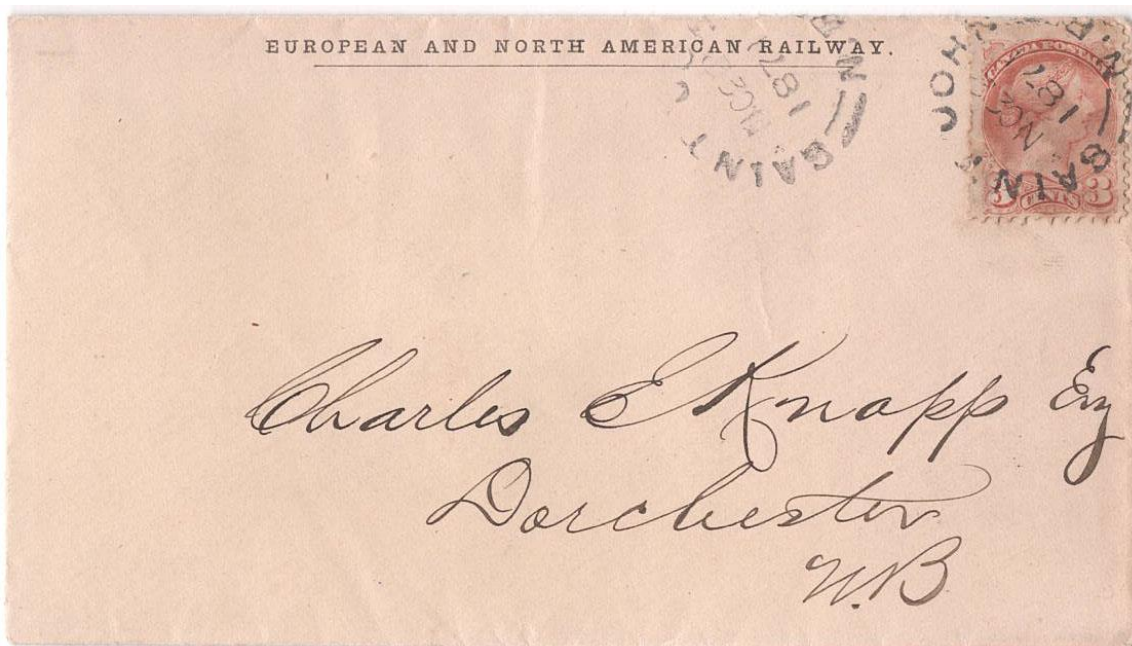 EUROPEAN AND NORTH AMERICAN RAILWAY.
SAINT JOHN N.B
SAINT N.B
CANADA POSTAGE
3 CENTS 3
Charles E Knapp Esq
Dorchester
N.B